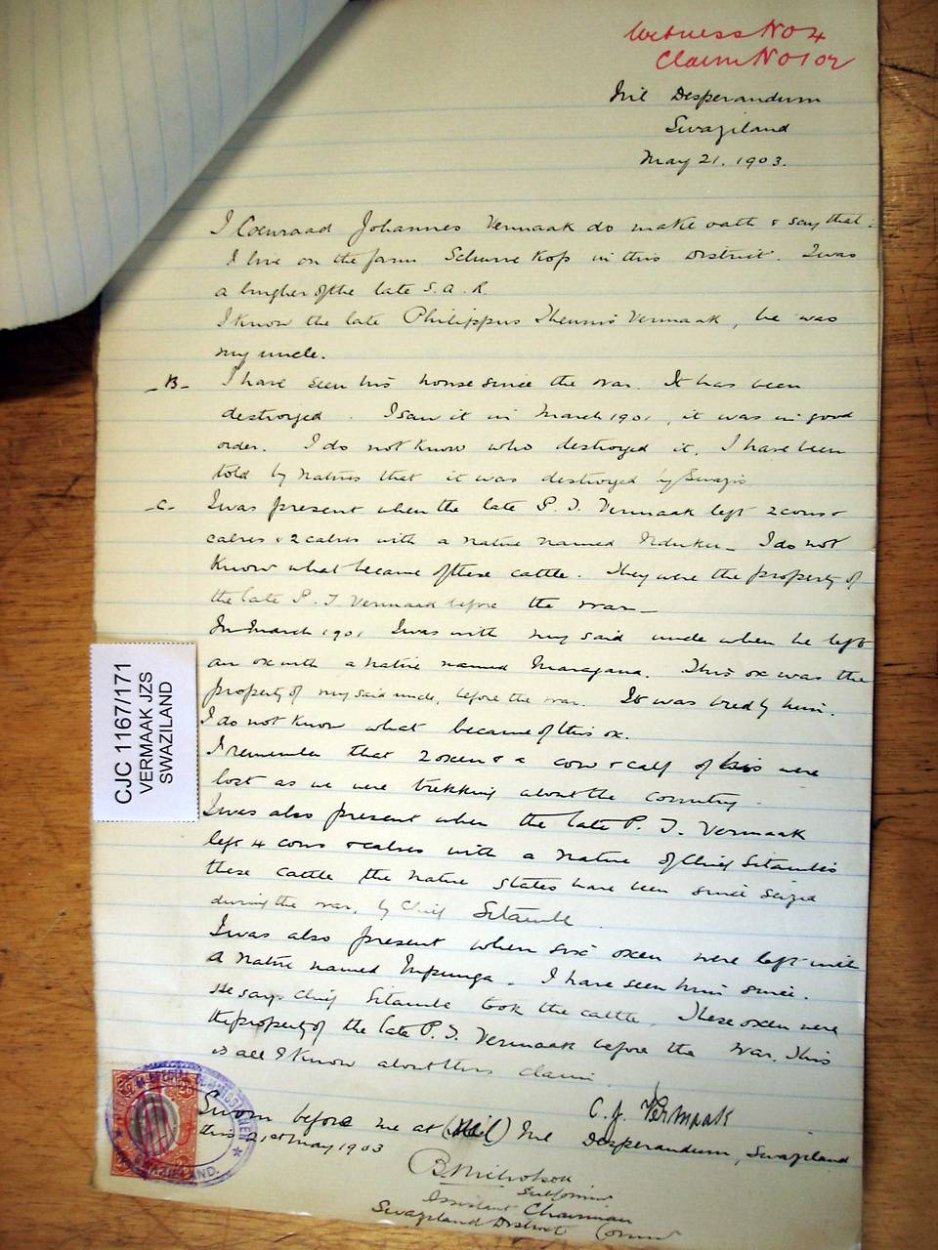 Witness No 4
Claim No 102
Nil Desperandum
Swaziland
May 21. 1903.
I Coenraad Johannes Vermaak do make oath & say that:
I live on the farm Scheurve Kop in this District. I was
a burgher of the late S.A.R.
I know the late Philippus Theunis Vermaak, he was
my uncle.
- B - I have seen his house since the war. It has been
destroyed. I saw it in March 1901, it was in good
order. I do not know who destroyed it. I have been
told by natives that it was destroyed by Swazis
- C - I was present when the late P. T. Vermaak left 2 cows &
calves & 2 calves with a native named - I do not
know what became of these cattle. They were the property of
the late P. T. Vermaak before the war -
In March 1901 I was with my said uncle when he left
an ox with a native named Maragana. This ox was the
property of my said uncle, before the war. It was bred by him.
I do not know what became of this ox.
I remember that 2 oxen & a cow & calf of his were
lost as we were trekking about the country.
I was also present when the late P. T. Vermaak
left 4 cows & calves with a native of Chief Sitambe's
these cattle the native states have been since seized
during the war, by Chief Sitambe
I was also present when six oxen were left with
a native named Mpunga. I have seen him since.
He says Chief Sitambe took the cattle. These oxen were
the property of the late P. T. Vermaak before the war. This
is all I know about this claim.
C. J. Vermaak
Sworn before me at (Nil) Nil Desperandum, Swaziland
this 21st May 1903
B Nicholson
Assistant Chairman
Swaziland District Comm
CJC 1167/171
VERMAAK JZS
SWAZILAND